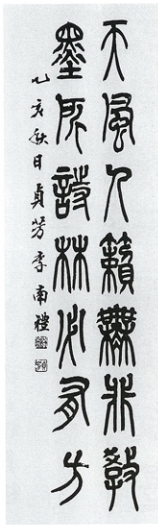 天風人籟無非敎
墨詩林必有方
乙亥秋日貞芳李南禮